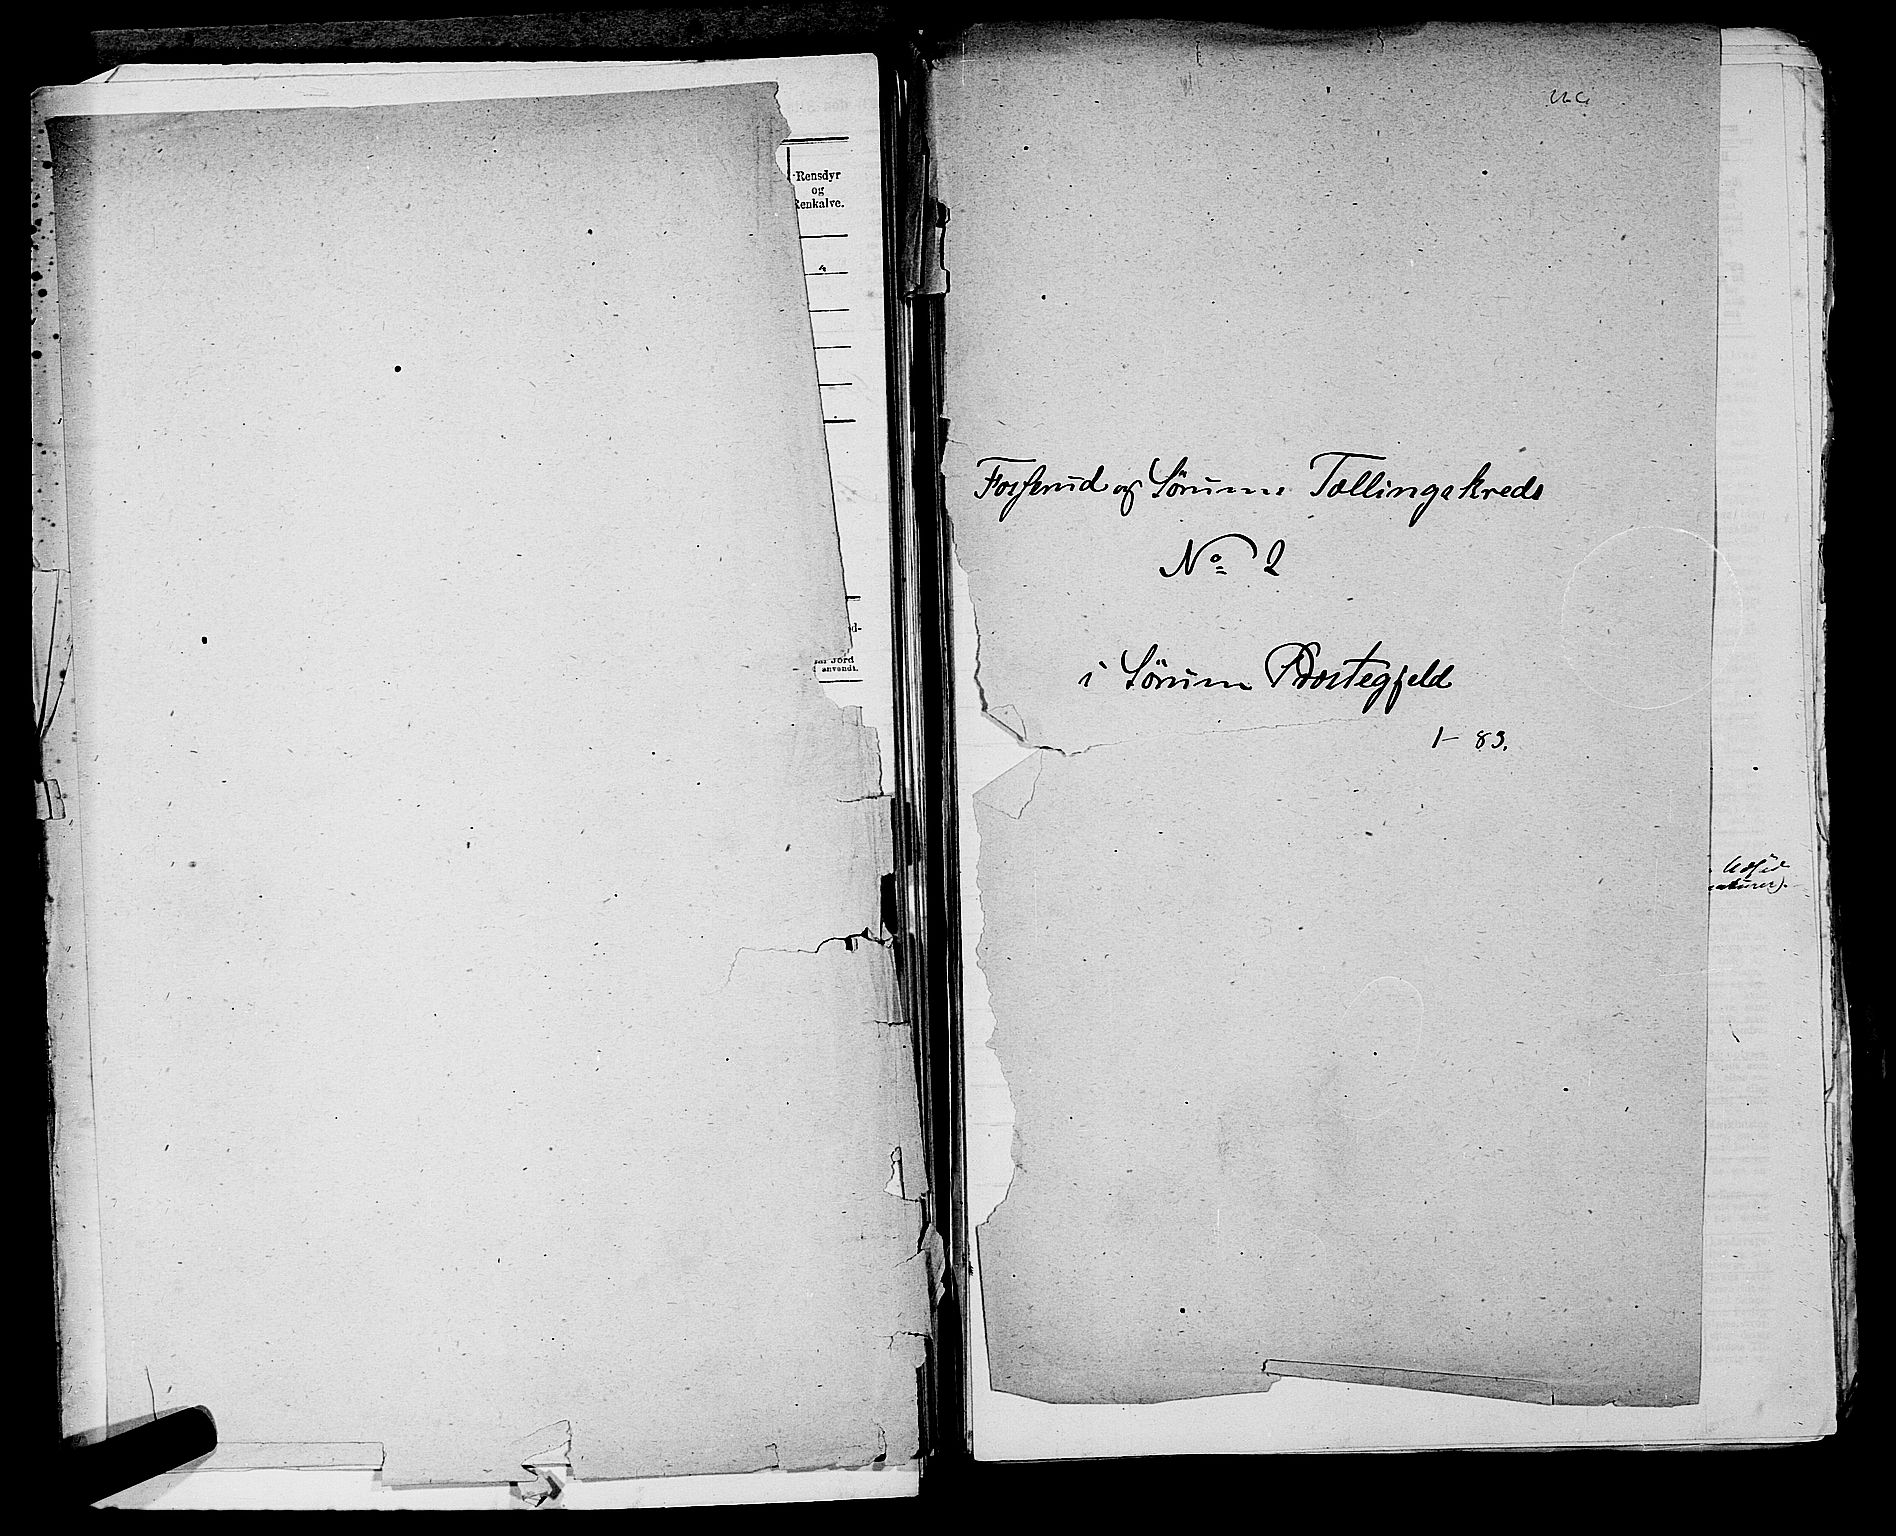 Rensdyr
og
Renkalve.
Jord
anvendt.
Fosserud og Sørum Tællingskreds
No 2
i Sørum Præstegjeld
1-83.